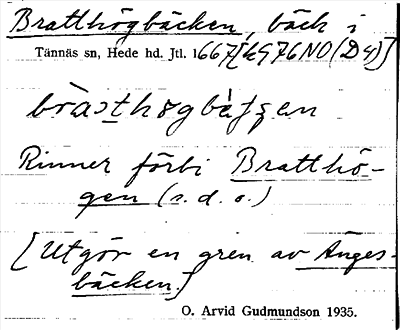 Bratthögbäcken, bäck i
Tännäs sn, Hede hd. Jtl. 1667[k976NO(D4)]
Rinner förbi Bratthö-
gen (s. d. o.)
[Utgör en gren av Änges-
bäcken.]
O. Arvid Gudmundson 1935.